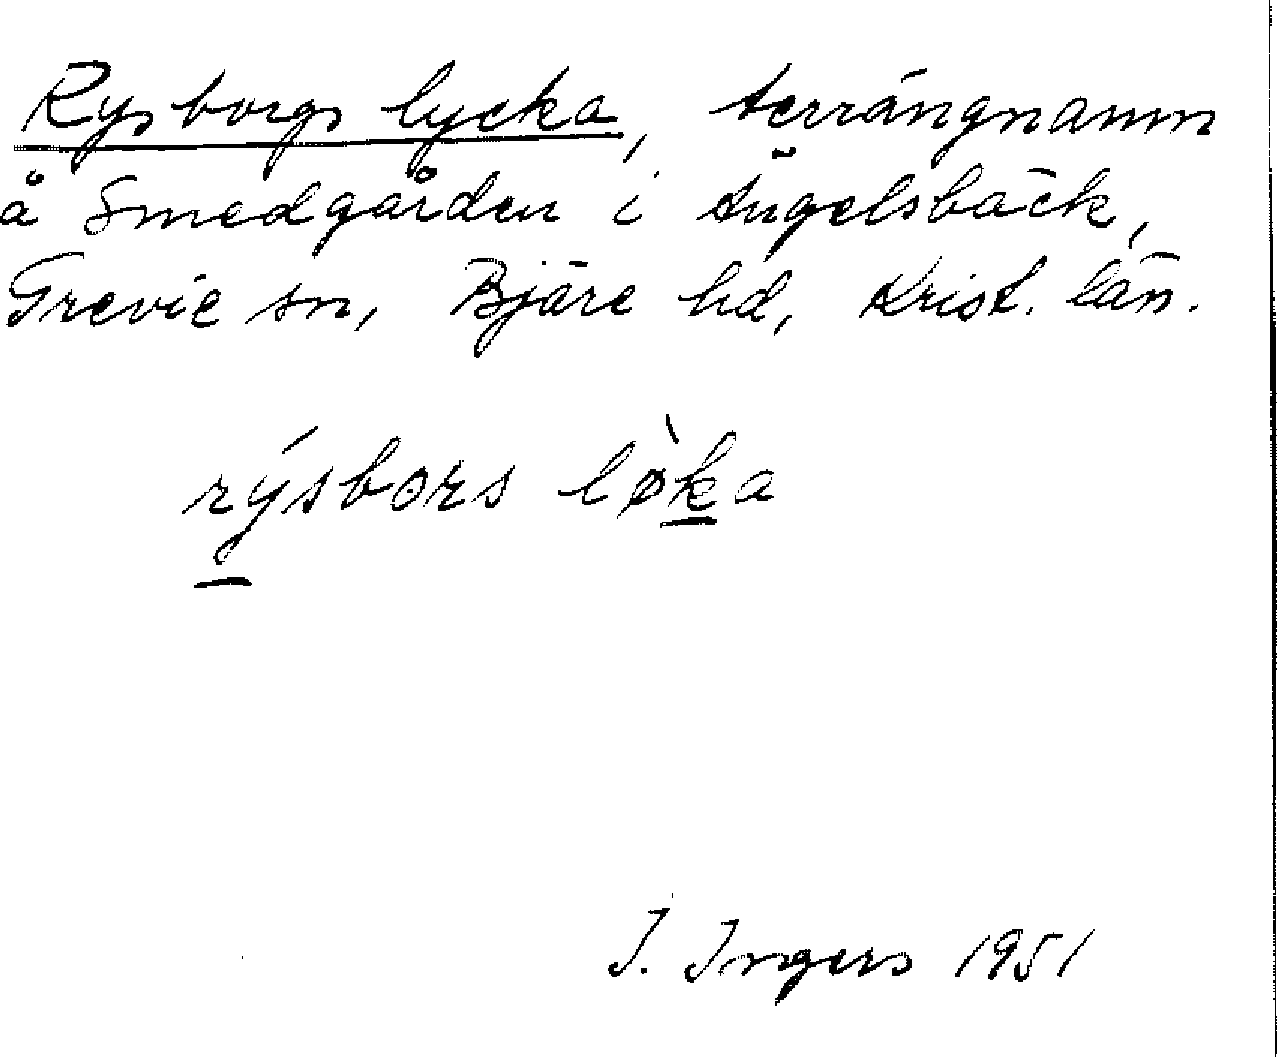 Rysborgs lycka, terrängnamn
å Smedgården i Ängelsbäck,
Grevie sn, Bjäre hd, Krist. län.
rýsbors lø̀ka
I. Ingers 1951